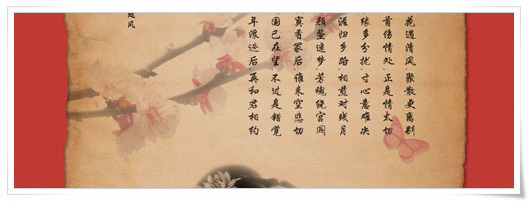 花遇清风.聚散更离别
首伤情处.正是情太切
缘多分扰.寸心意难决
涯归乡路.相煎对残月
颜坠迷梦.芳魂绕宫阙
寞香冢后.谁来空悲切
国已在望.不过是错觉
年浪迹后.再和君相约
风